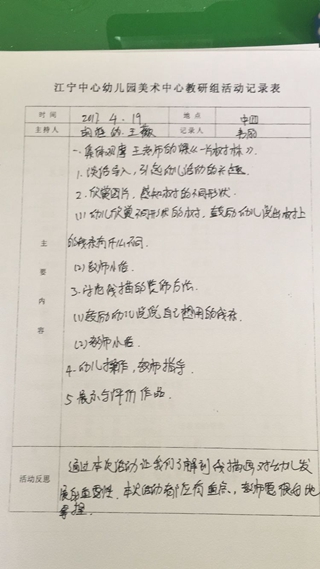 江宁中心幼儿园美术中心教研组活动记录表
时间 2017.4.19 地点 中四
主持人 王 记录人
一、集体观摩 王老师的课《一片树林》.
1.谈话导入,引起幼儿活动的兴趣.
2.欣赏图片,感知树的不同形状.
(1)幼儿欣赏不同形状的树,鼓励幼儿说出树上
的线条有什么不同.
(2)教师小结.
3.讨论线描的装饰方法.
(1)鼓励幼儿说说自己想用的线条.
(2)教师小结.
4.幼儿操作,教师指导.
5.展示与评价作品.
主要内容
活动反思 通过本次活动让我们了解到线描画对幼儿发
展的重要性.本次活动有,教师要很好地
掌握.